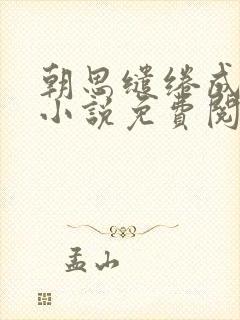 朝思缱绻成
小说免费阅
孟山